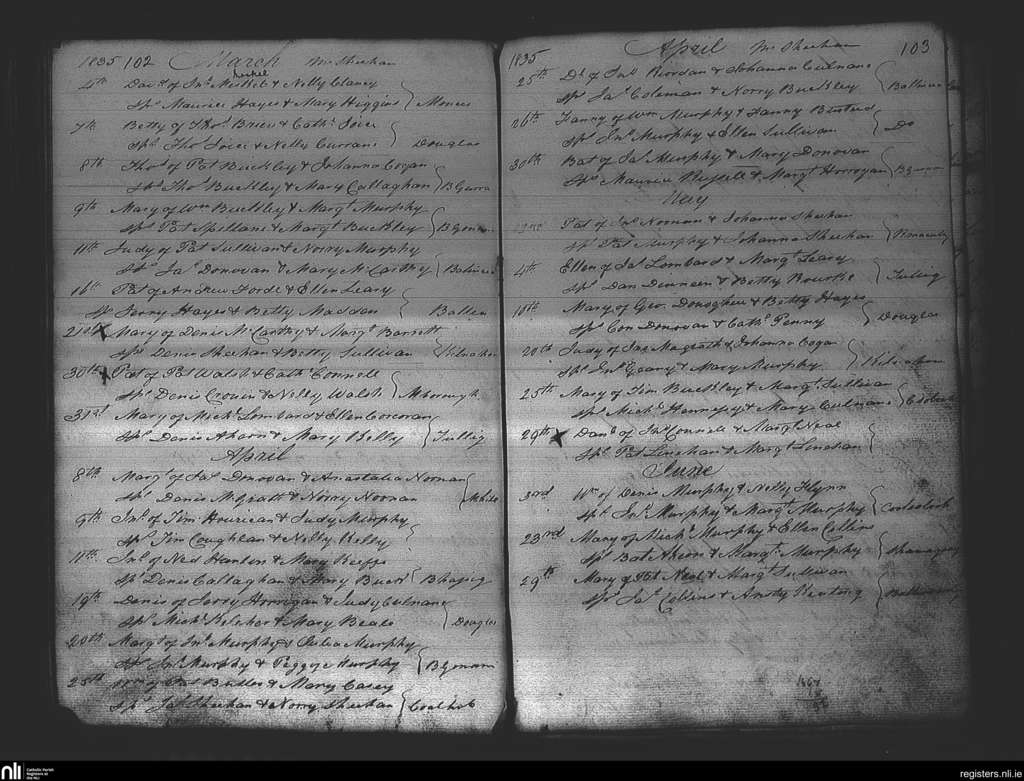 1835 102 March Mr Sheehan
4th Davd of Jno Neshel & Nelly Clancy
Sps Maurice Hayes & Mary Higgins
7th Betty of Thos Brien & Cathe Joice
Sps Thos Joice & Nelly Currane Douglas
8th Thos of Pat Buckley & Johanna Cogan
Sps Thos Buckley & Mary Callaghan
9th Mary of Wm Buckley & Margt Murphy
Sps Pat Spillane & Margt Buckley
11th Judy of Pat Sullivan & Norry Murphy
Sps Jas Donovan & Mary McCarthy
16th Pat of Andrew Forde & Ellen Leary
Sps Jerry Hayes & Betty Madden
21st x Mary of Denis McCarthy & Margt Barrett
Sps Denis Sheehan & Betty Sullivan
30th x Pat of Pat Walsh & Cathe Connell
Sps Denis Cronin & Nelly Walsh
31st Mary of Michl Lombard & Ellen Corcoran
Sps Denis Ahern & Mary Kelly Tullig
April
8th Margt of Jas Donovan & Anastatia Noonan
Sps Denis Mcgrath & Norry Noonan
9th Jno of Tim Hourican & Judy Murphy
Sps Tim Coughlan & Nelly Kelly
11th Jno of Ned Hanlon & Mary
Sps Denis Callaghan & Mary
19th Denis of Jerry Horrigan & Judy Culnane
Sps Michl Kelehar & Mary Beale Douglas
20th Margt of Jno Murphy & Julia Murphy
Sps Jno Murphy & Peggye Murphy
25th Wm of Pat Butler & Mary Casey
Sps Jas Sheehan & Norry Sheehan
1835 April Mr Sheehan 103
25th Dl of Jno Riordan & Johanna Culnane
Sps Jas Coleman & Norry Buckley
26th Fanny of Wm Murphy & Fanny Busteed
Sps Jno Murphy & Ellen Sullivan Do
30th Bat of Jas Murphy & Mary Donovan
Sps Maurice Russell & Margt Horrogan
May
Pat of Jno Noonan & Johanna Sheehan
Sps Pat Murphy & Johanna Sheehan
4th Ellen of Jas Lombard & Margt Leary
Sps Dan Denneen & Betty Rourke Tullig
18th Mary of Geo. Donoghue & Betty Hayes
Sps Con Donovan & Cathe Penny Douglas
20th Judy of Jas Magrath & Johanna Cogan
Sps Jno Geary & Mary Murphy
25th Mary of Tim Buckley & Margt Sullivan
Sps Michl Hennessy & Mary Culnane
29th x Danl of Jno Connell & Margt Neal
Sps Pat Linehan & Margt Linehan
June
3rd Wm of Denis Murphy & Nelly Flynn
Sps Jno Murphy & Margt Murphy
23rd Mary of Michl Murphy & Ellen Collins
Sps Bat Ahern & Margt Murphy
29th Mary of Pat Neal & Margt Sullivan
Sps Jas Collins &
nli Catholic Parish Registers at the NLI
registers.nli.ie